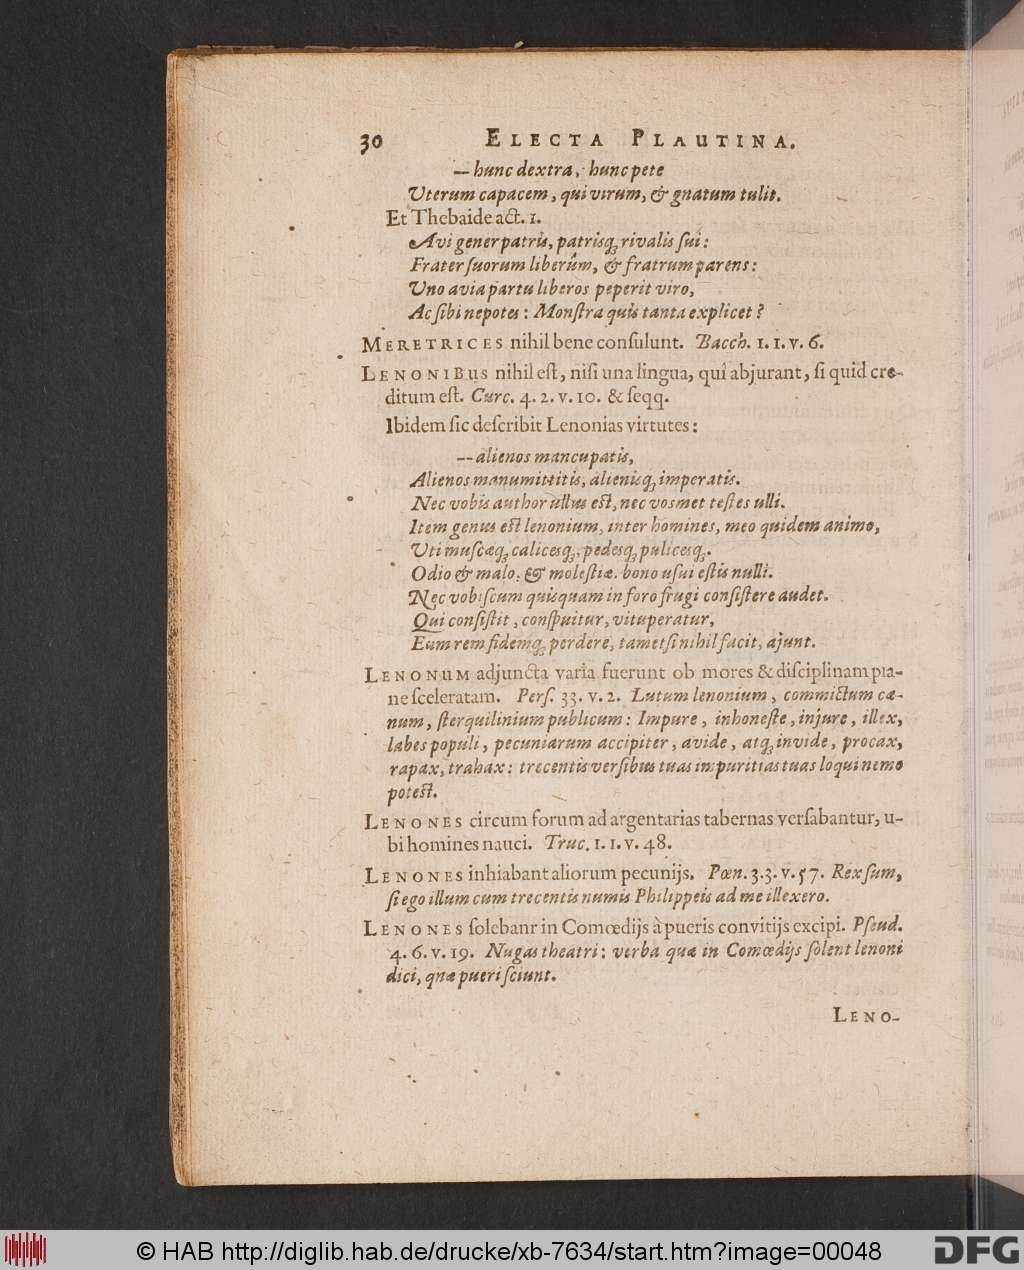 30 ELECTA PLAUTINA.
— hunc dextra, hunc pete
Uterum capacem, qui virum, & gnatum tulit.
Et Thebaide act. 1.
Avi gener patris, patrisq; rivalis sui:
Frater suorum liberûm, & fratrum parens:
Uno avia partu liberos peperit viro,
Ac sibi nepotes: Monstra quis tanta explicet?
MERETRICES nihil bene consulunt. Bacch. 1. 1. v. 6.
LENONIBUS nihil est, nisi una lingua, quî abjurant, si quid cre-
ditum est. Curc. 4. 2. v. 10. & seqq.
Ibidem sic describit Lenonias virtutes:
-- alienos mancupatis,
Alienos manumittitis, alienisq; imperatis.
Nec vobis author ullus est, nec vosmet testes ulli.
Item genus est lenonium, inter homines, meo quidem animo,
Uti muscæq; calicesq;, pedesq; pulicesq;.
Odio & malo, & molestiæ. bono usui estis nulli.
Nec vobiscum quisquam in foro frugi consistere audet.
Qui consistit, conspuitur, vituperatur,
Eum rem fidemq; perdere, tametsi nihil facit, ajunt.
LENONUM adjuncta varia fuerunt ob mores & disciplinam pla-
ne sceleratam. Pers. 33. v. 2. Lutum lenonium, commictum cæ-
num, sterquilinium publicum: Impure, inhoneste, injure, illex,
labes populi, pecuniarum accipiter, avide, atq; invide, procax,
rapax, trahax: trecentis versibus tuas impuritias tuas loqui nemo
potest.
LENONES circum forum ad argentarias tabernas versabantur, u-
bi homines nauci. Truc. 1. 1. v. 48.
LENONES inhiabant aliorum pecunijs. Pœn. 3. 3. v. 57. Rex sum,
si ego illum cum trecentis numis Philippeis ad me illexero.
LENONES solebanr in Comœdijs à pueris convitijs excipi. Pseud.
4. 6. v. 19. Nugas theatri: verba quæ in Comœdijs solent lenoni
dici, qnæ pueri sciunt.
LENO-
© HAB http://diglib.hab.de/drucke/xb-7634/start.htm?image=00048
DFG